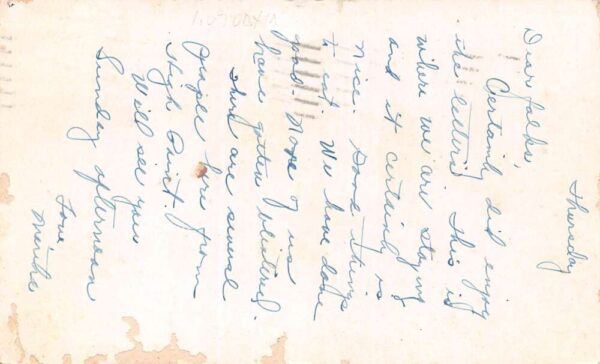 Thursday
Dear folks,
Certainly did enjoy
the letters. This is
where we are staying
and it certainly is
nice. Good things
to eat. We have done
good. None of us
have gotten blistered.
There are several
people here from
High Point.
Will see you
Sunday afternoon
Love